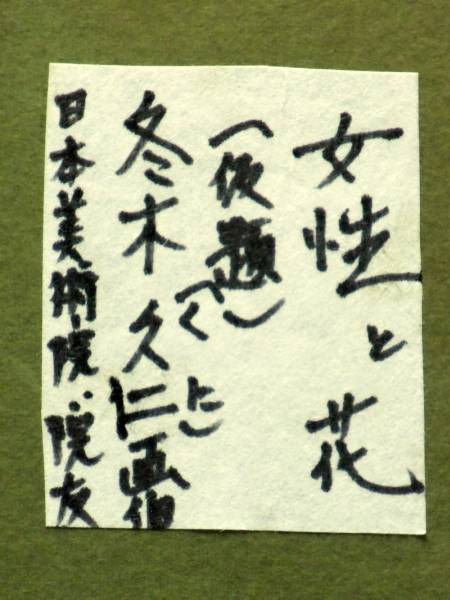 女性と花
(仮題)
冬木久仁画伯
(くに)
日本美術院・院友